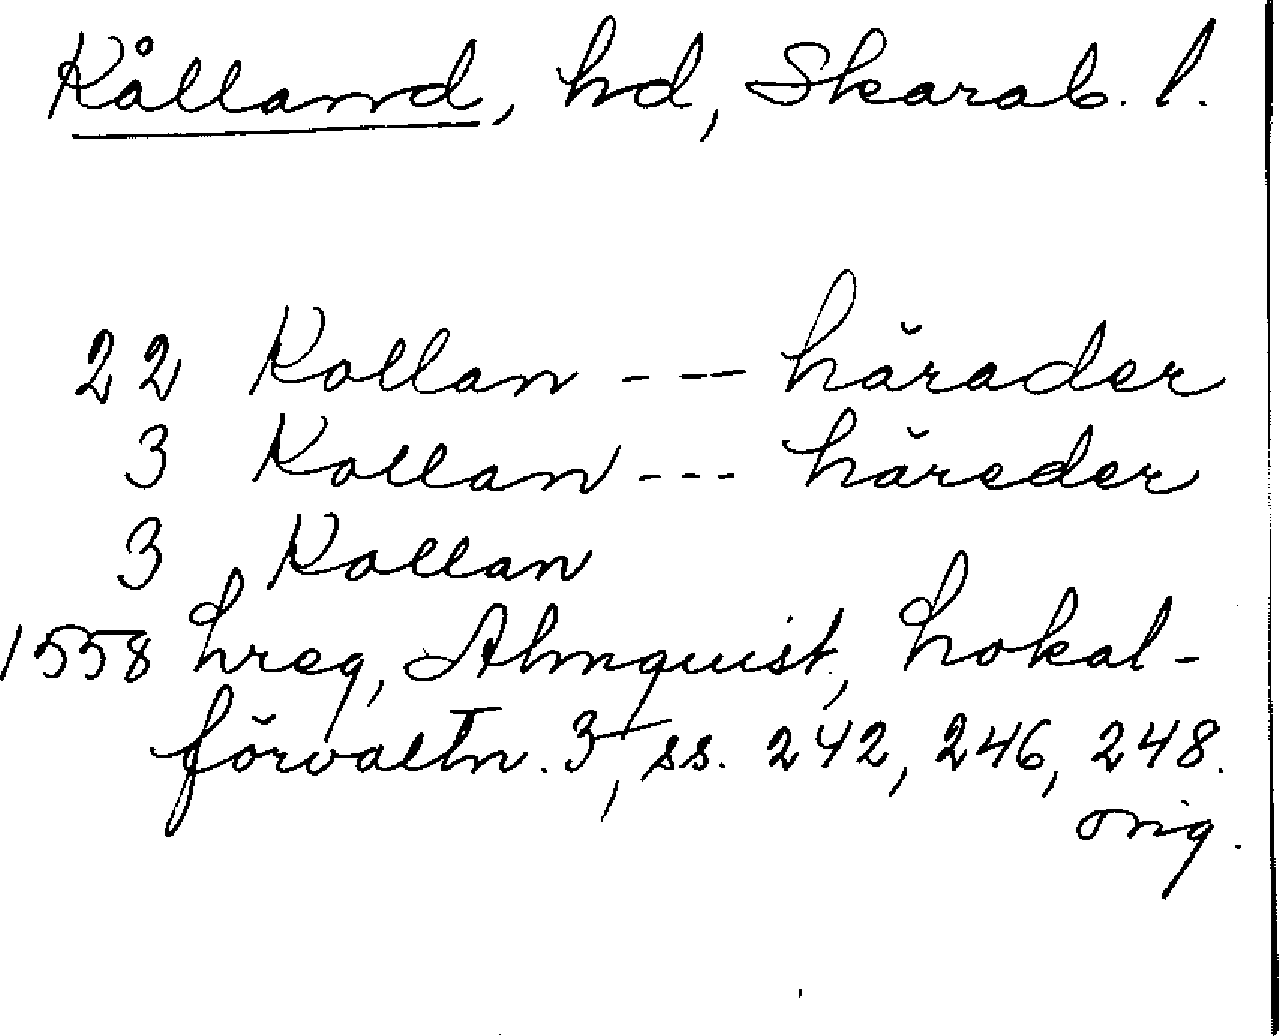 Kålland, hd, Skarab. l.
22 Kollan --- härader
3 Kollan --- häreder
3 Kollan
1558 hreg, Almquist, Lokal-
förvaltn. 3, ss. 242, 246, 248.
orig.